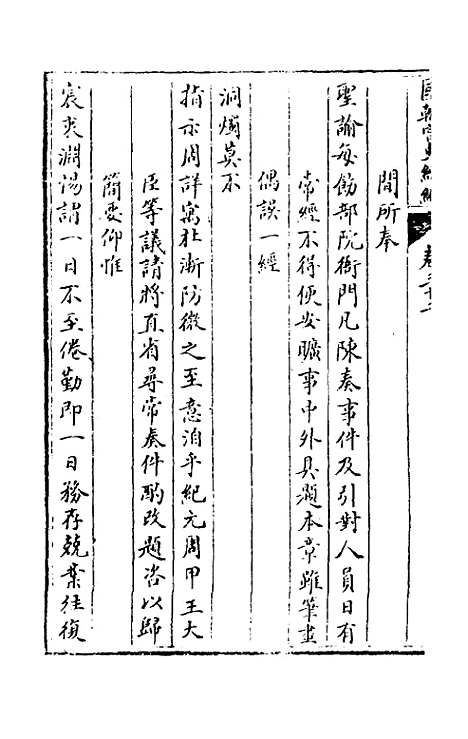 間所奉
聖諭每飭部院衙門凡陳奏事件及引對人員日有
常經不得便安曠事中外具題本章雖筆畫
偶誤一經
洞燭莫不
指示周詳寓杜漸防微之至意洎乎紀元周甲王大
臣等議請將直省尋常奏件酌改題咨以歸
簡要仰惟
宸衷淵惕謂一日不至倦勤即一日務存兢業往復